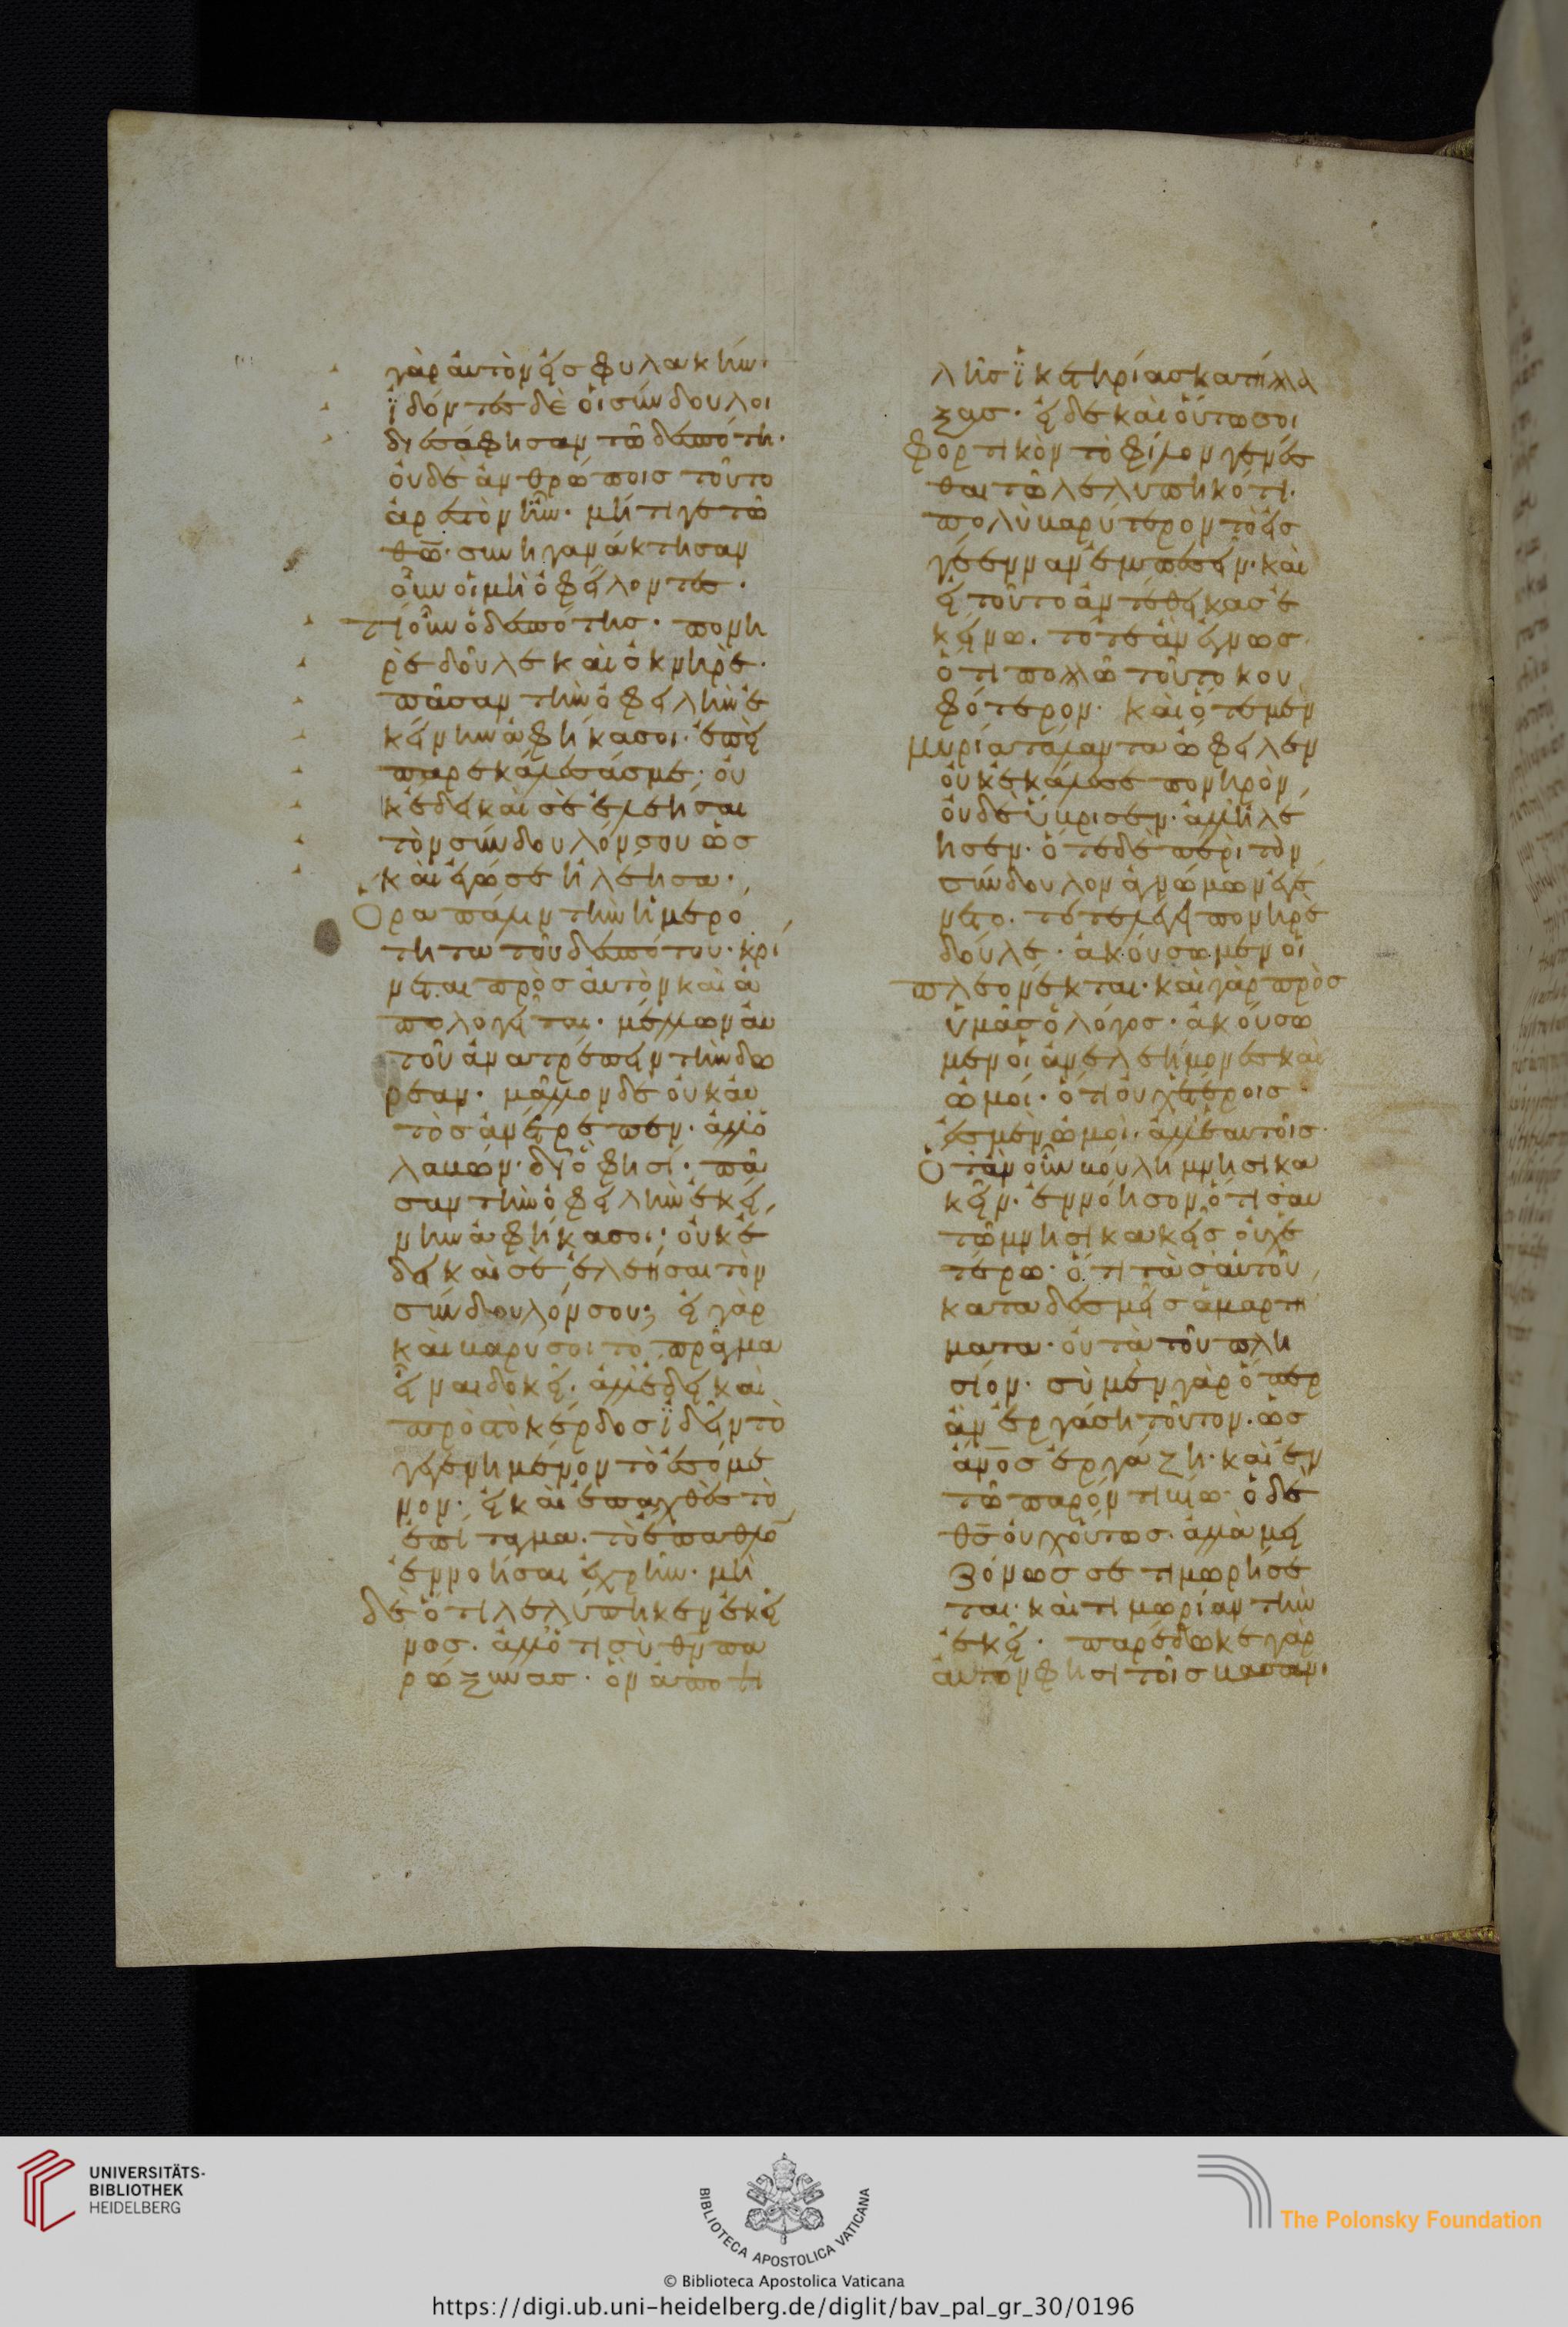 γὰρ ἀυτὸν εἰσ φυλακήν·
ϊδόντες δὲ ὁι σύνδουλοι
διεσάφησαν τῶ δεσπότη·
ὀυδὲ ἀνθρώποισ τοῦτο
ἀρεστὸν ἦν· μήτιγε τῶ
θω̄· συνηγανάκτησαν
οὖν ὁι μὴ ὀφείλοντες·
τί οὖν ὁ δεσπότησ· πονη
ρὲ δοῦλε καὶ ὀκνηρὲ·
πᾶσαν τὴν ὀφειλὴν ἐ
κείνην ἀφῆκά σοι· ἐπεὶ
παρεκάλεσάσ με· οὐ
κ ἔδει καὶ σὲ ἐλεῆσαι
τὸν σύνδουλόν σου ὡσ
καὶ ἐγώ σε ἠλέησα·
Ὅρα πάλιν τὴν ἡμερό
τητα τοῦ δεσπότου· κρί
νεται πρὸσ ἀυτὸν καὶ ἀ
πολογεῖται· μέλλων ἀυ
τοῦ ἀνατρέπειν τὴν δω
ρεαν· μᾶλλον δὲ οὐκ ἀυ
τὸσ ἀνέτρεπεν· ἀλλ' ὁ
λαβών· διό φησί· πᾶ
σαν τὴν ὀφειλὴν ἐκεί
νην ἀφῆκά σοι· οὐκ ἔ
δει καὶ σὲ ἐλεῆσαι τὸν
σύνδουλόν σου; εἰ γὰρ
καὶ βαρύ σοι τὸ πρᾶγμα
εἶναι δοκεῖ· ἀλλ' ἔδει καὶ
πρὸσ τὸ κέρδοσ ϊδεῖν τὸ
γεγενημένον τὸ ἐσόμε
νον· εἰ καὶ ἐπαχθὲσ τὸ
ἐπίταγμα· τὸ ἔπαθλον
ἐννοῆσαι ἐχρῆν· μὴ
δὲ ὅτι λελύπηκεν ἐκεῖ
νοσ· ἀλλ' ὅτι σὺ θν̄ πα
ρώξυνασ· ὃν ἀπὸ ψι
λῆσ ϊκετηρίασ κατήλλα
ξασ· εἰ δὲ καὶ οὕτωσ σοι
φορτικὸν τὸ φίλον γενέσ
θαι τῶ λελυπηκότι·
πολὺ βαρύτερον τὸ εἰσ
γέενναν ἐμπεσεῖν· καὶ
εἰ τοῦτο ἀντέθεικασ ἐ
κείνω· τότε ἂν ἔγνωσ
ὅτι πολλῶ τοῦτο κου
φότερον· καὶ ὅτε μὲν
μυρία τάλαντα ὤφειλεν
οὐκ ἐκάλεσε πονηρὸν
ὀυδὲ ὕβρισεν· ἀλλ' ἠλέ
ησεν· ὅτε δὲ περὶ τὸν
σύνδουλον ἀγνώμων ἐγέ
νετο· τότε λέγει πονηρὲ
δοῦλε· ἀκούσωμεν ὁι
πλεονέκται· καὶ γὰρ πρὸσ
ὑμᾶσ ὁ λόγοσ· ἀκούσω
μεν ὁι ἀνελεήμονες καὶ
ὠμοί· ὅτι οὐχ ἑτέροισ
ἐσμὲν ὠμοὶ· ἀλλ' ἑαυτοῖσ·
Ὅταν οὖν βούλη μνησικα
κεῖν· ἐννόησον ὅτι σαυ
τῶ μνησικακεῖσ οὐχ ἑ
τέρω· ὅτι τὰ σἀυτοῦ
καταδεσμεῖσ ἁμαρτή
ματα· οὐ τὰ τοῦ πλη
σίον· σὺ μὲν γὰρ ὅπερ
ἂν ἐργάση τοῦτον· ὡσ
ἀν̄οσ ἐργάζη· καὶ ἐν
τῶ παρόντι βίω· ὁ δὲ
θς̄ οὐχ ὅυτωσ· ἀλλὰ μει
ζόνωσ σε τιμωρήσε
ται· καὶ τιμωρίαν τὴν
ἐκεῖ· παρέδωκε γὰρ
ἀυτόν φησι τοῖσ βασανι
UNIVERSITÄTS-
BIBLIOTHEK
HEIDELBERG
BIBLIOTECA APOSTOLICA VATICANA
The Polonsky Foundation
© Biblioteca Apostolica Vaticana
https://digi.ub.uni-heidelberg.de/diglit/bav_pal_gr_30/0196